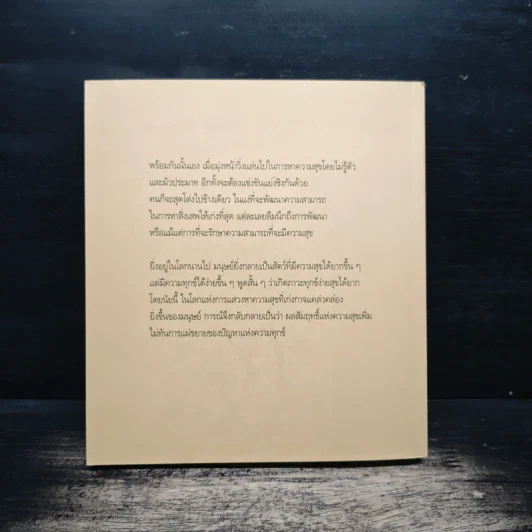 พร้อมกันนั้นเอง เมื่อมุ่งหน้าวิ่งแล่นไปในการหาความสุขโดยไม่รู้ตัว
และมัวประมาท อีกทั้งจะต้องแข่งขันแย่งชิงกันด้วย
คนก็จะสุดโต่งไปข้างเดียว ในแง่ที่จะพัฒนาความสามารถ
ในการหาสิ่งเสพให้เก่งที่สุด แต่ละเลยลืมนึกถึงการพัฒนา
หรือแม้แต่การที่จะรักษาความสามารถที่จะมีความสุข
ยิ่งอยู่ในโลกนานไป มนุษย์ยิ่งกลายเป็นสัตว์ที่มีความสุขได้ยากขึ้น ๆ
แต่มีความทุกข์ได้ง่ายขึ้น ๆ พูดสั้น ๆ ว่าเกิดภาวะทุกข์ง่ายสุขได้ยาก
โดยนัยนี้ ในโลกแห่งการแสวงหาความสุขที่เก่งกาจแคล่วคล่อง
ยิ่งขึ้นของมนุษย์ การณ์จึงกลับกลายเป็นว่า ผลสัมฤทธิ์แห่งความสุขเพิ่ม
ไม่ทันการแผ่ขยายของปัญหาแห่งความทุกข์